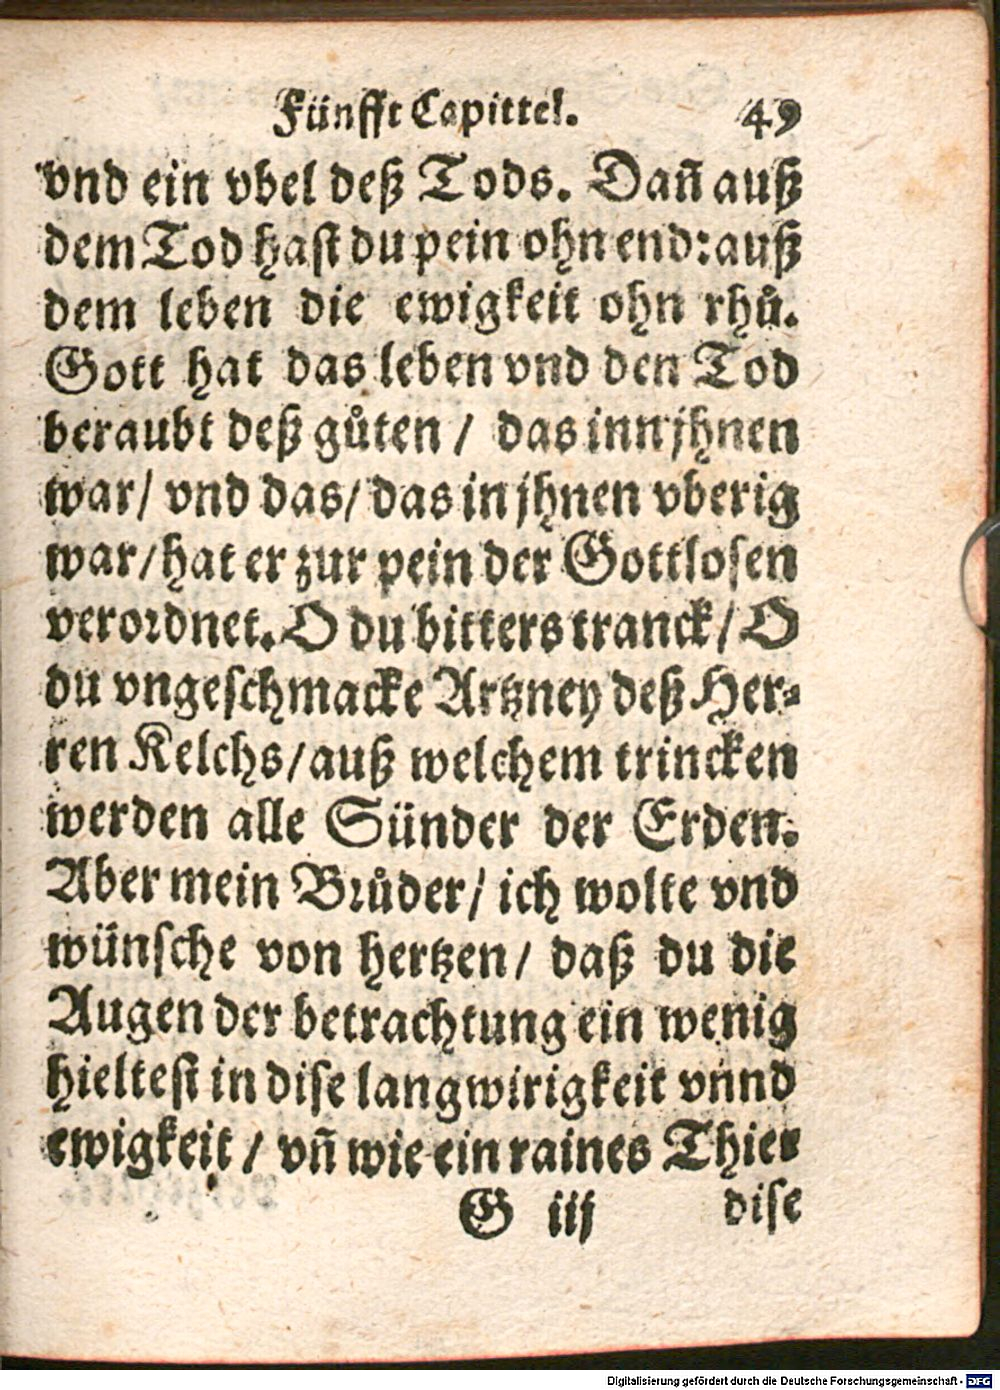 Fünfft Capittel. 49
vnd ein vbel deß Tods. Dañ auß
dem Tod hast du pein ohn end: auß
dem leben die ewigkeit ohn rhů.
Gott hat das leben vnd den Tod
beraubt deß gůten / das inn jhnen
war / vnd das / das in jhnen vberig
war / hat er zur pein der Gottlosen
verordnet. O du bitters tranck / O
du vngeschmacke Artzney deß Her⸗
ren Kelchs / auß welchem trincken
werden alle Sünder der Erden.
Aber mein Brůder / ich wolte vnd
wünsche von hertzen / daß du die
Augen der betrachtung ein wenig
hieltest in dise langwirigkeit vnnd
ewigkeit / vñ wie ein raines Thier
G iij dise
Digitalisierung gefördert durch die Deutsche Forschungsgemeinschaft - DFG